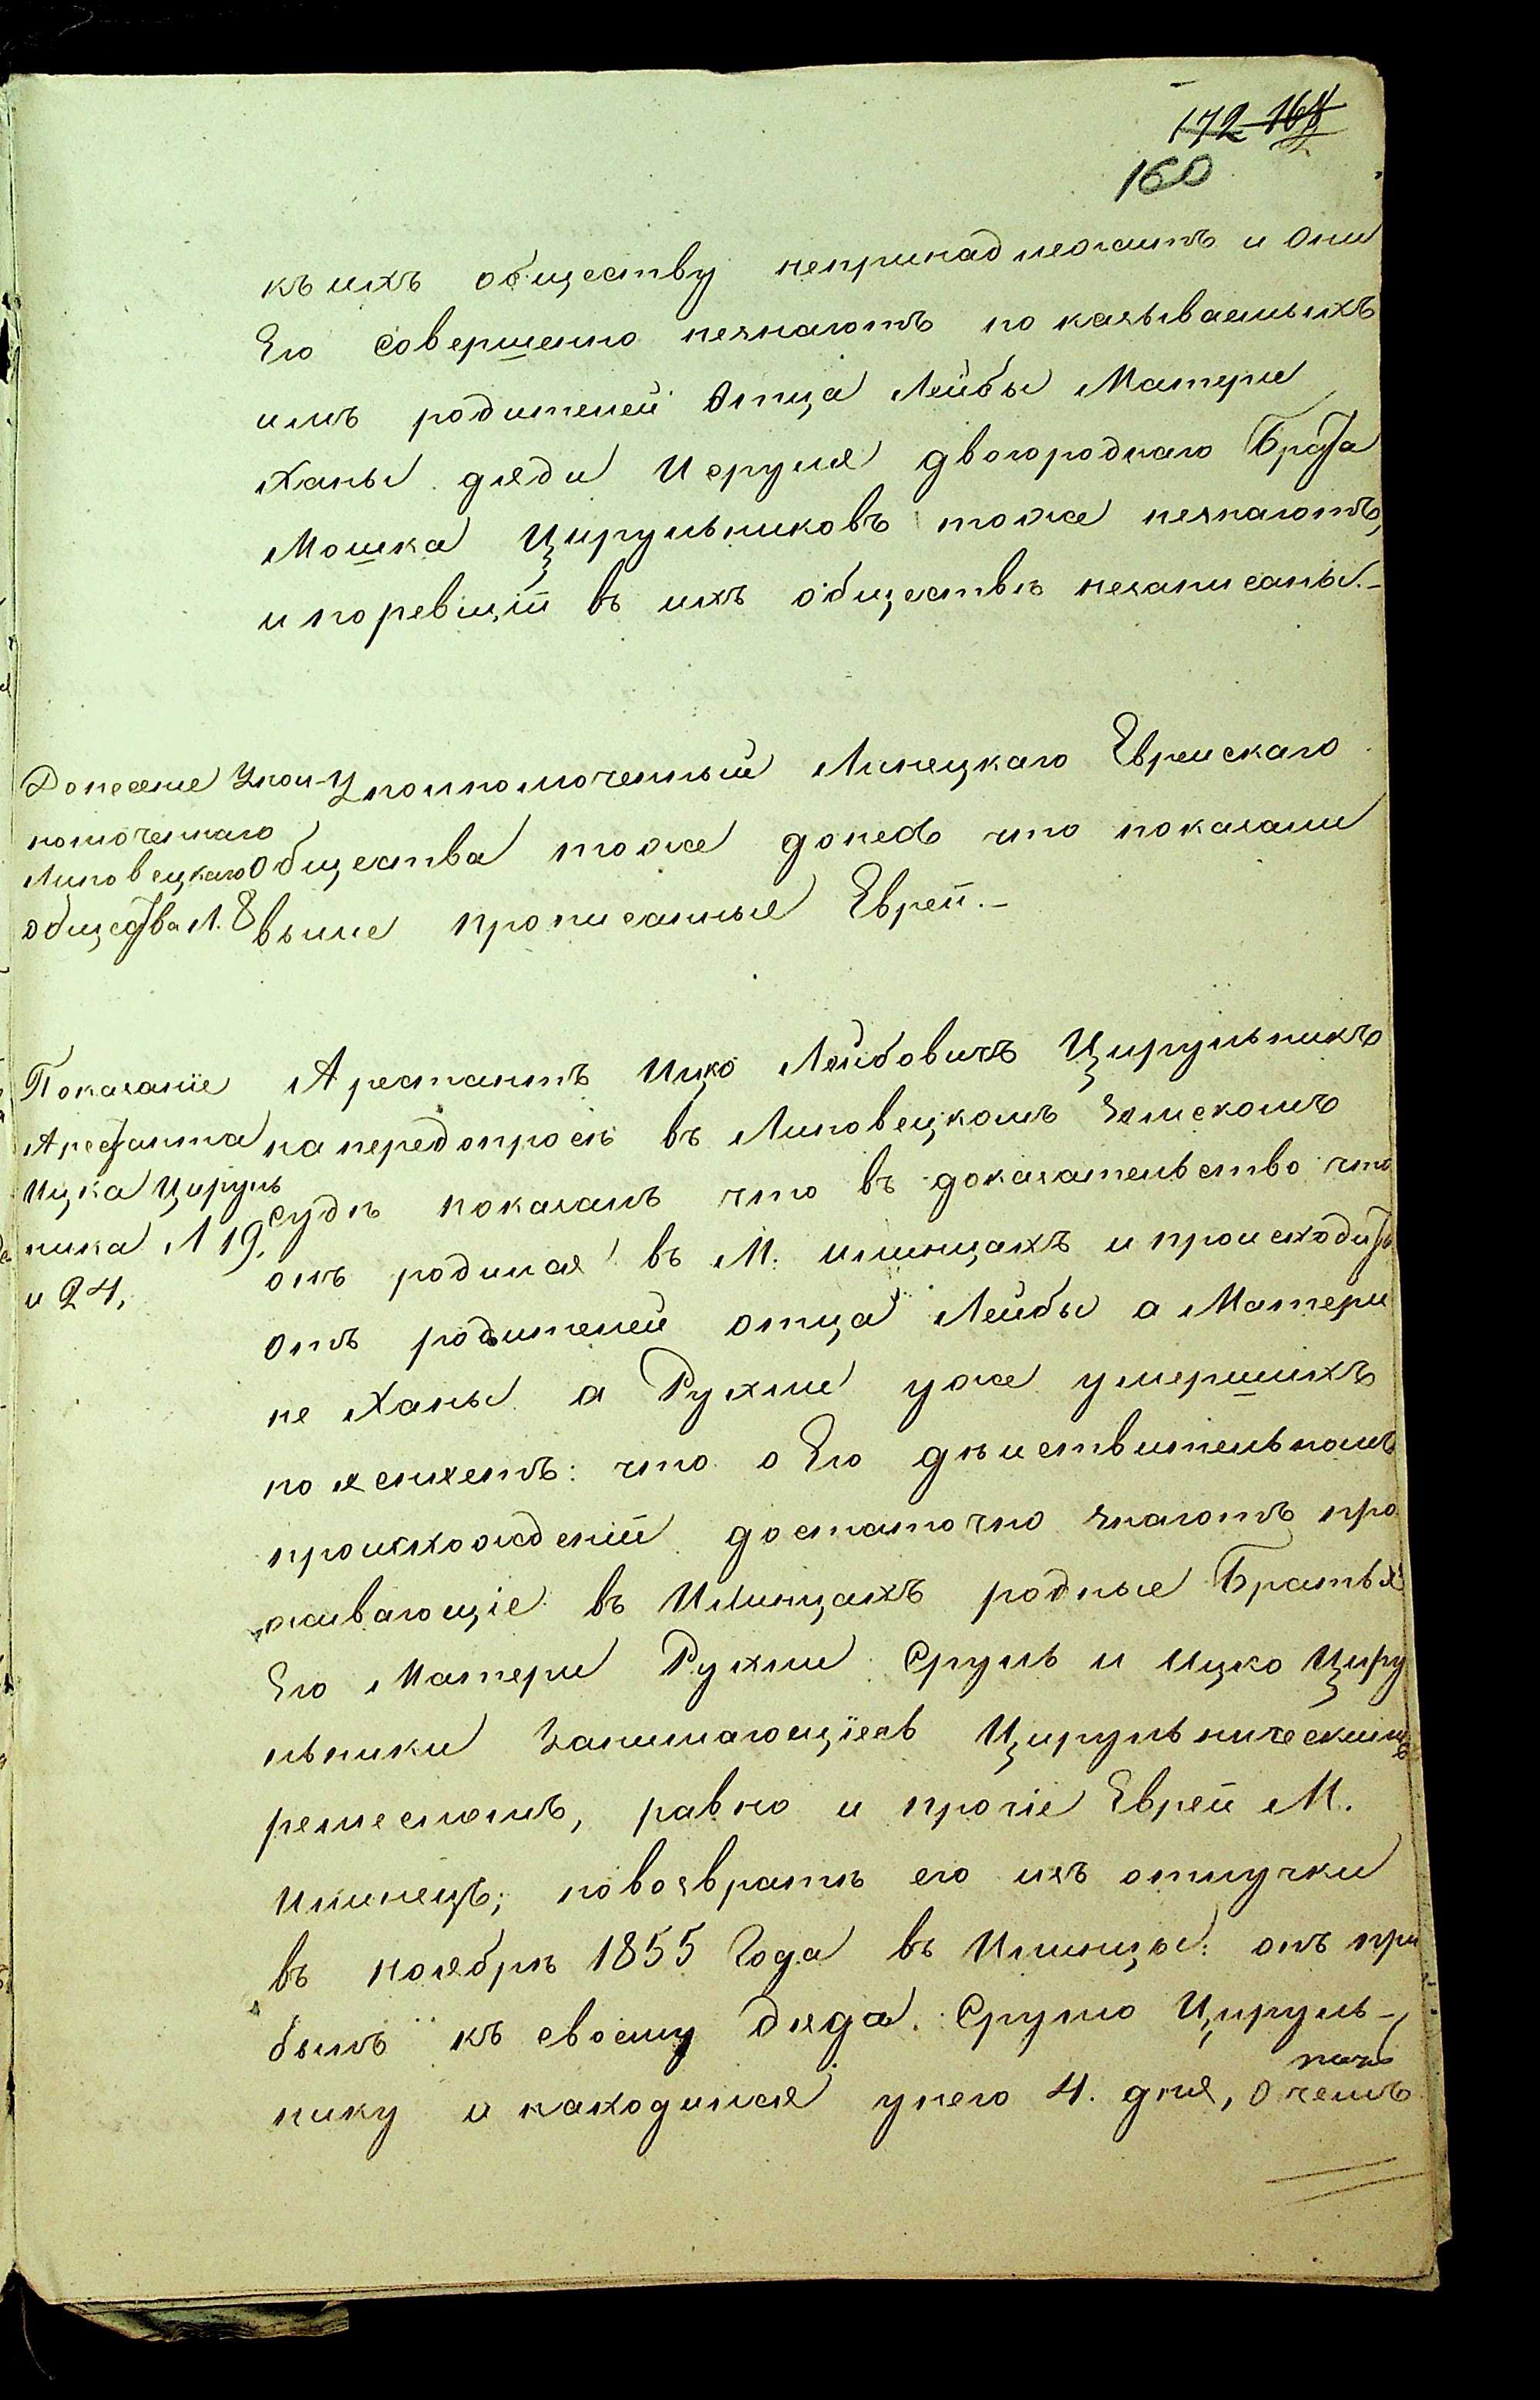 172 168
160
къ ихъ обществу непринадлежитъ и Они
Его совершенно незнаютъ показываемыхъ
имъ родителей Отца Лейбы Матери
Ханы дяди Исруля двоюроднаго Брата
Мошка Цирульниковъ тоже незнаютъ,
и поревізіи въ ихъ обществѣ незаписаны.-
Донесеніе Упол-
номоченнаго
Липовецкаго
общества Л. 8
Уполномоченный Линецкаго Еврейскаго
Общества тоже донесъ что показали
выше прописанные Евреи.-
Показаніе
Арестанта
Ицка Цируль
ника Л 19,
и 24,
Арестантъ Ицко Лейбовичъ Цирульникъ
на передопросѣ въ Липовецкомъ Земскомъ
Судѣ показалъ что въ доказательство что
онъ родился въ М. Илинцахъ и происходитъ
отъ родителей отца Лейбы а Матери
не Ханы а Рухли уже умершихъ
поясняетъ: что о Его дѣйствительномъ
происхожденіи достаточно знаютъ про
живающіе въ Илинцахъ родные Братья
Его Матери Рухли Сруль и Ицко Циру
льники Занимающіесь Цирульническимъ
ремесломъ, равно и прочіе Евреи М.
Илинецъ; повозвратѣ его изъ отлучки
въ ноябрѣ 1855 Года въ Илинцы: онъ при
былъ къ своему дядѣ Срулю Цируль-
нику и находился унего 4. дня, О чемъ